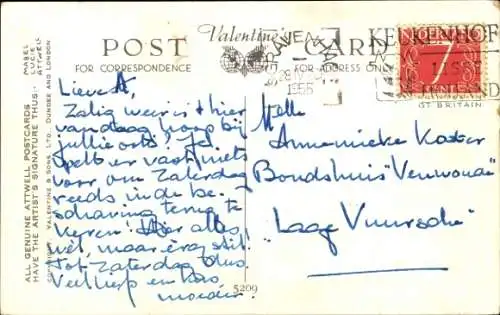 Valentine's
POST CARD
FOR CORRESPONDENCE
FOR ADDRESS ONLY
ALL GENUINE ATTWELL POSTCARDS
HAVE THE ARTIST'S SIGNATURE THUS:-
MABEL
LUCIE
ATTWELL
COPYRIGHT. VALENTINE & SONS LTD. DUNDEE AND LONDON
KEUKENHOF
1956
NEDERLAND
7
CENT
GT BRITAIN
Lieve A,
Zalig weer is 't hier
vandaag, hoop bij
jullie ook! Jel
hebt er vast niets
voor om Zaterdag
reeds in de be-
schaving terug te
keren! Hier alles
wel, maar erg stil!
Tot Zaterdag dus
Veel liefs en kus
moeder.
Mejie
Annemieke Koster
Bondshuis "Venwoude"
"Lage Vuursche"
5209